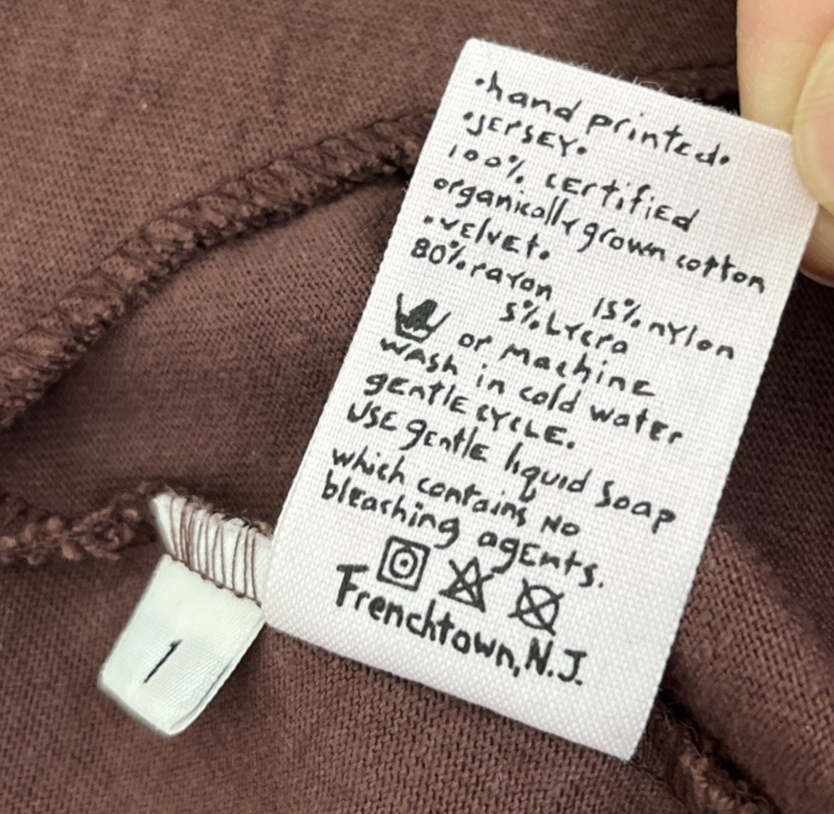 •hand printed•
•JERSEY•
100% CERTIFIED
organically grown cotton
•VELVET•
80% rayon 15% nylon
5% Lycra
or MACHINE
WASH in cold water
gentle CYCLE.
USE gentle liquid Soap
which contains NO
bleaching agents.
Frenchtown, N.J.
1